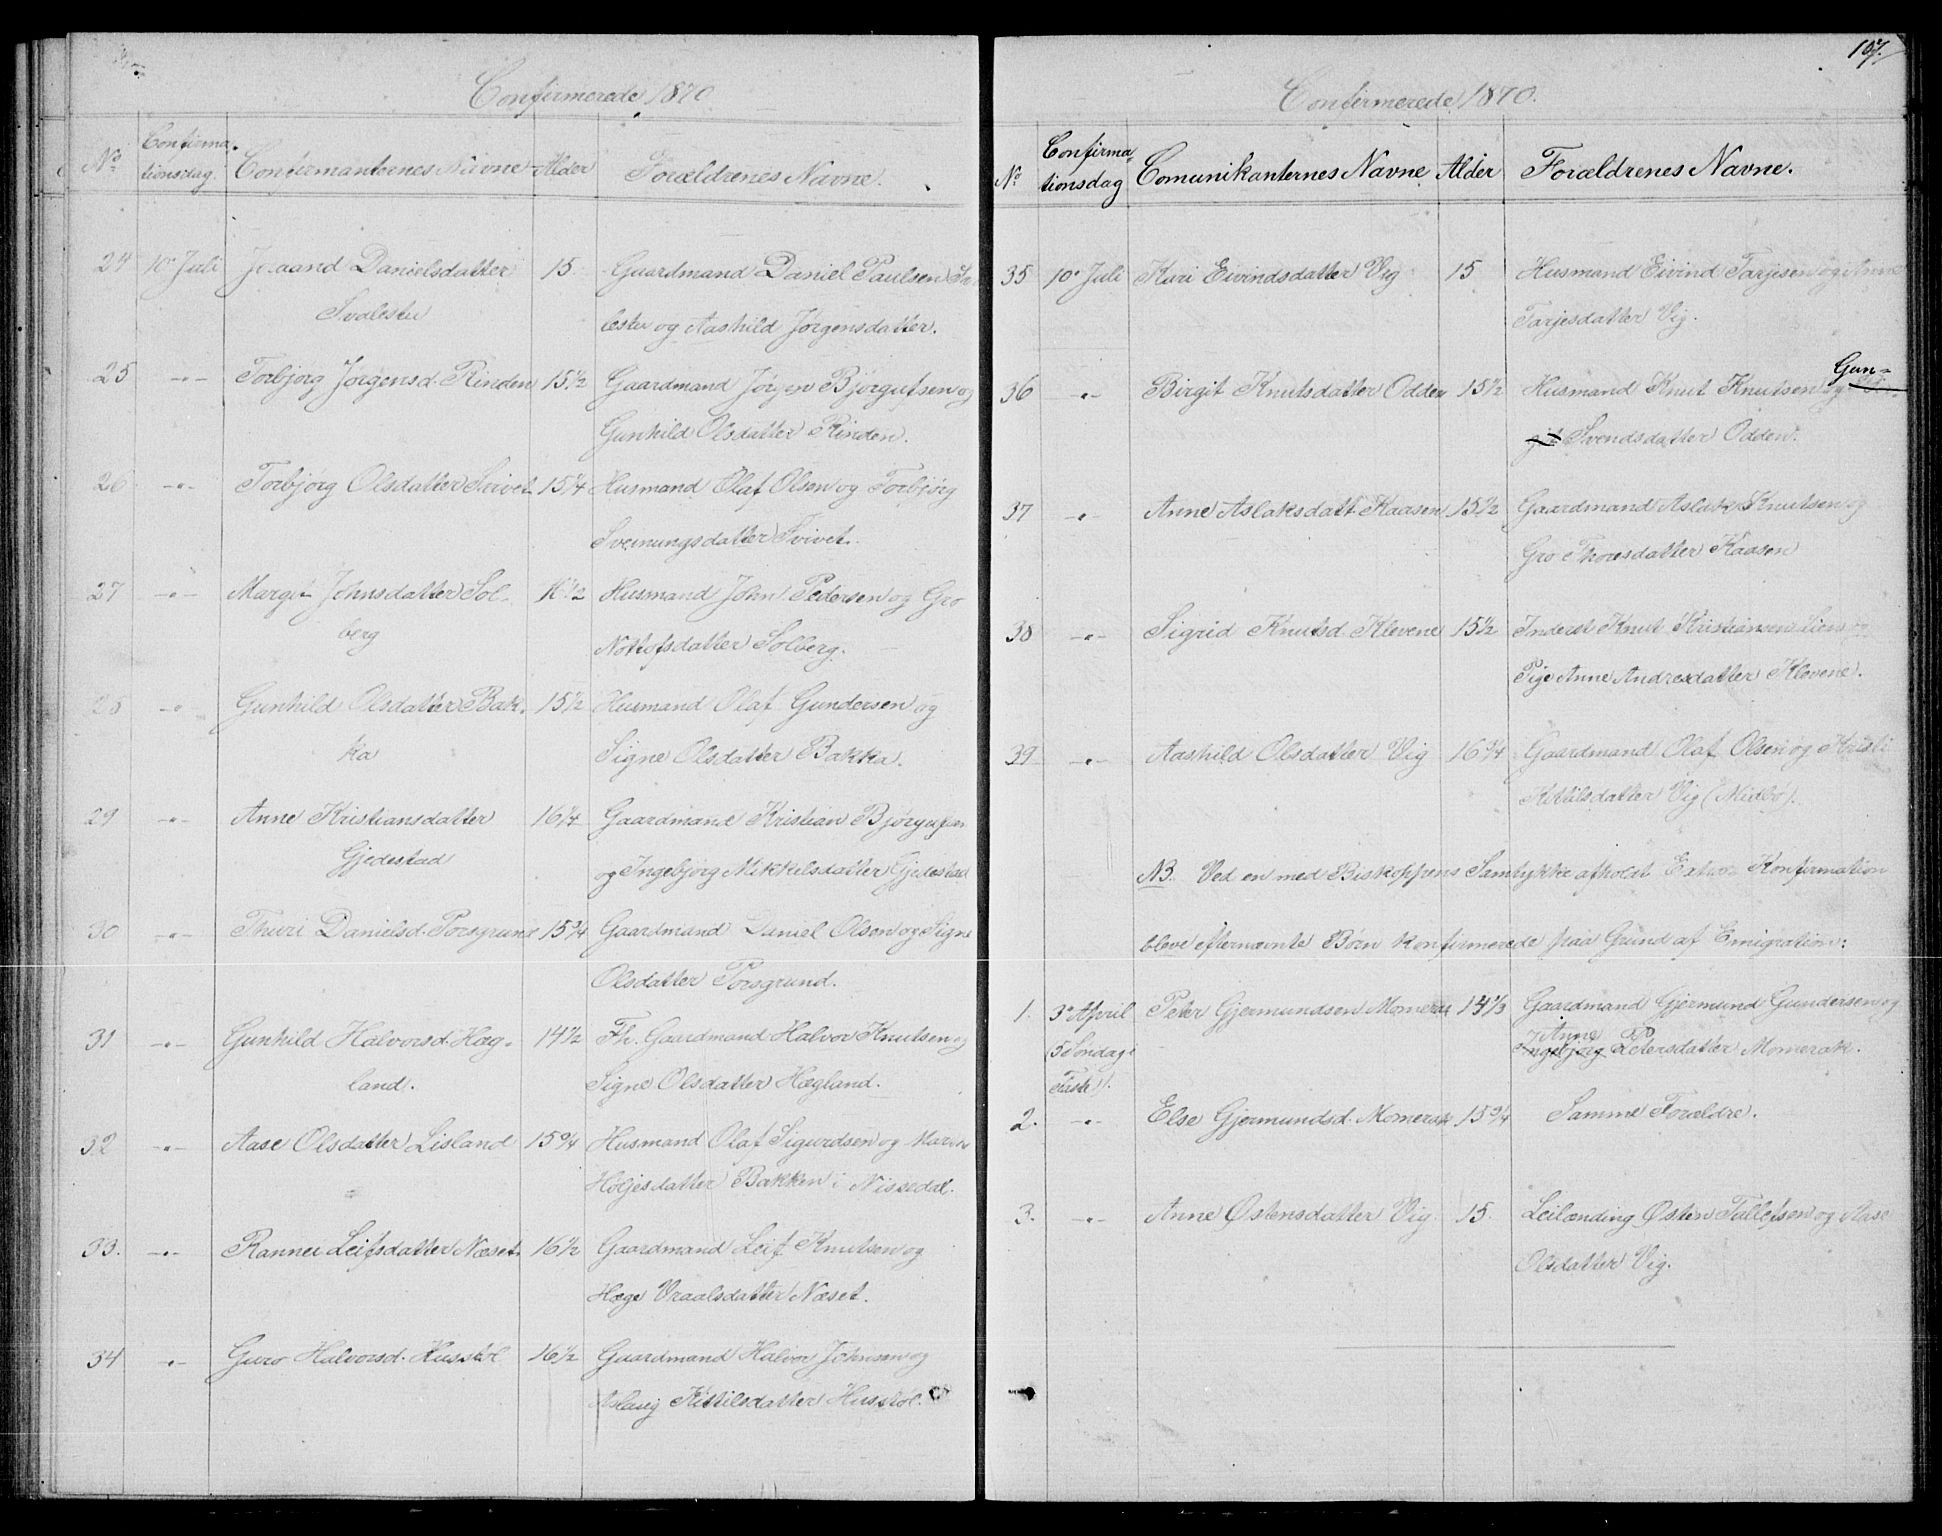 Confirmerede 1870
No
Confirma-
tionsdag.
Confirmanternes Navne
Alder
Forældrenes Navne.
24 10 Juli Danielsdatter 15. Gaardmand Daniel Paulsen
Svalestu lestu og Aashild Jørgensdatter.
25 -„- Torbjørg Jørgensd. Rinden 15 1/2 Gaardmand Jørgen Bjørgufsen og
Gunhild Olsdatter Rinden.
26 -„- Torbjørg Olsdatter Svivet 15 1/4 Husmand Olaf Olsen og Torbjørg
Sveinungsdatter Svivet.
27 -„- Margit Johnsdatter Sol- 16 1/2 Husmand John Pedersen og Gro
berg Nottofsdatter Solberg.
28 -„- Gunhild Olsdatter Bak- 15 1/2 Husmand Olaf Gundersen og
ka Signe Olsdatter Bakka.
29 -„- Anne Kristiansdatter 16 1/4 Gaardmand Kristian Bjørgufsen
Gjedestad og Ingebjørg Mikkelsdatter Gjedestad
30 -„- Thuri Danielsd. Porsgrund 15 3/4 Gaardmand Daniel Olsen og Signe
Olsdatter Porsgrund.
31 -„- Gunhild Halvorsd. Hæg- 14 1/2 Fh. Gaardmand Halvor Knutsen og
land. Signe Olsdatter Hægland.
32 -„- Aase Olsdatter Lisland 15 3/4 Husmand Olaf Sigurdsen og Maren
Høljesdatter Bakken i Nissedal.
33. -„- Rannei Leifsdatter Næset. 16 1/2 Gaardmand Leif Knutsen og
Hæge Vraalsdatter Næset.
34 -„- Guro Halvorsd. Husstøl 16 1/2 Gaardmand Halvor Johnsen og
Aslaug Kittilsdatter Husstøl.
107.
Confirmerede 1870.
No
Confirma-
tionsdag
Comunikanternes Navne
Alder
Forældrenes Navne.
35 10 Juli Kari Eivindsdatter Vig 15 Husmand Eivind Tarjesen og Anne
Tarjesdatter Vig.
Gun-
36 -„- Birgit Knutsdatter Odden 15 1/2 Husmand Knut Knutsen og
git Svendsdatter Odden.
37 -„- Anne Aslaksdatt. Kaasen 15 1/2 Gaardmand Aslak Knutsen og
Gro Thoresdatter Kaasen
38 -„- Sigrid Knutsd. Klevene 15 1/2 Inderst Knut Kristiansen Lien og
Pige Anne Andresdatter Klevene.
39 -„- Aashild Olsdatter Vig 16 3/4 Gaardmand Olaf Olsen og Kristi
Kittilsdatter Vig (Midbø).
NB. Ved en med Biskoppens Samtykke afholdt Extra Konfirmation
bleve efternævnte Børn konfirmerede paa Grund af Emigration:
1. 3 April Peter Gjermundsen Momrak 14 1/3 Gaardmand Gjermund Gundersen og
Anne P
(5 Søndag i Ingebjørg Petersdatter Momerak.
Faste).
2. -„- Else Gjermundsd. Momrak 15 3/4 Samme Forældre.
3. -„- Anne Østensdatter Vig. 15. Leilænding Østen Tallefsen og Aase
Olsdatter Vig.